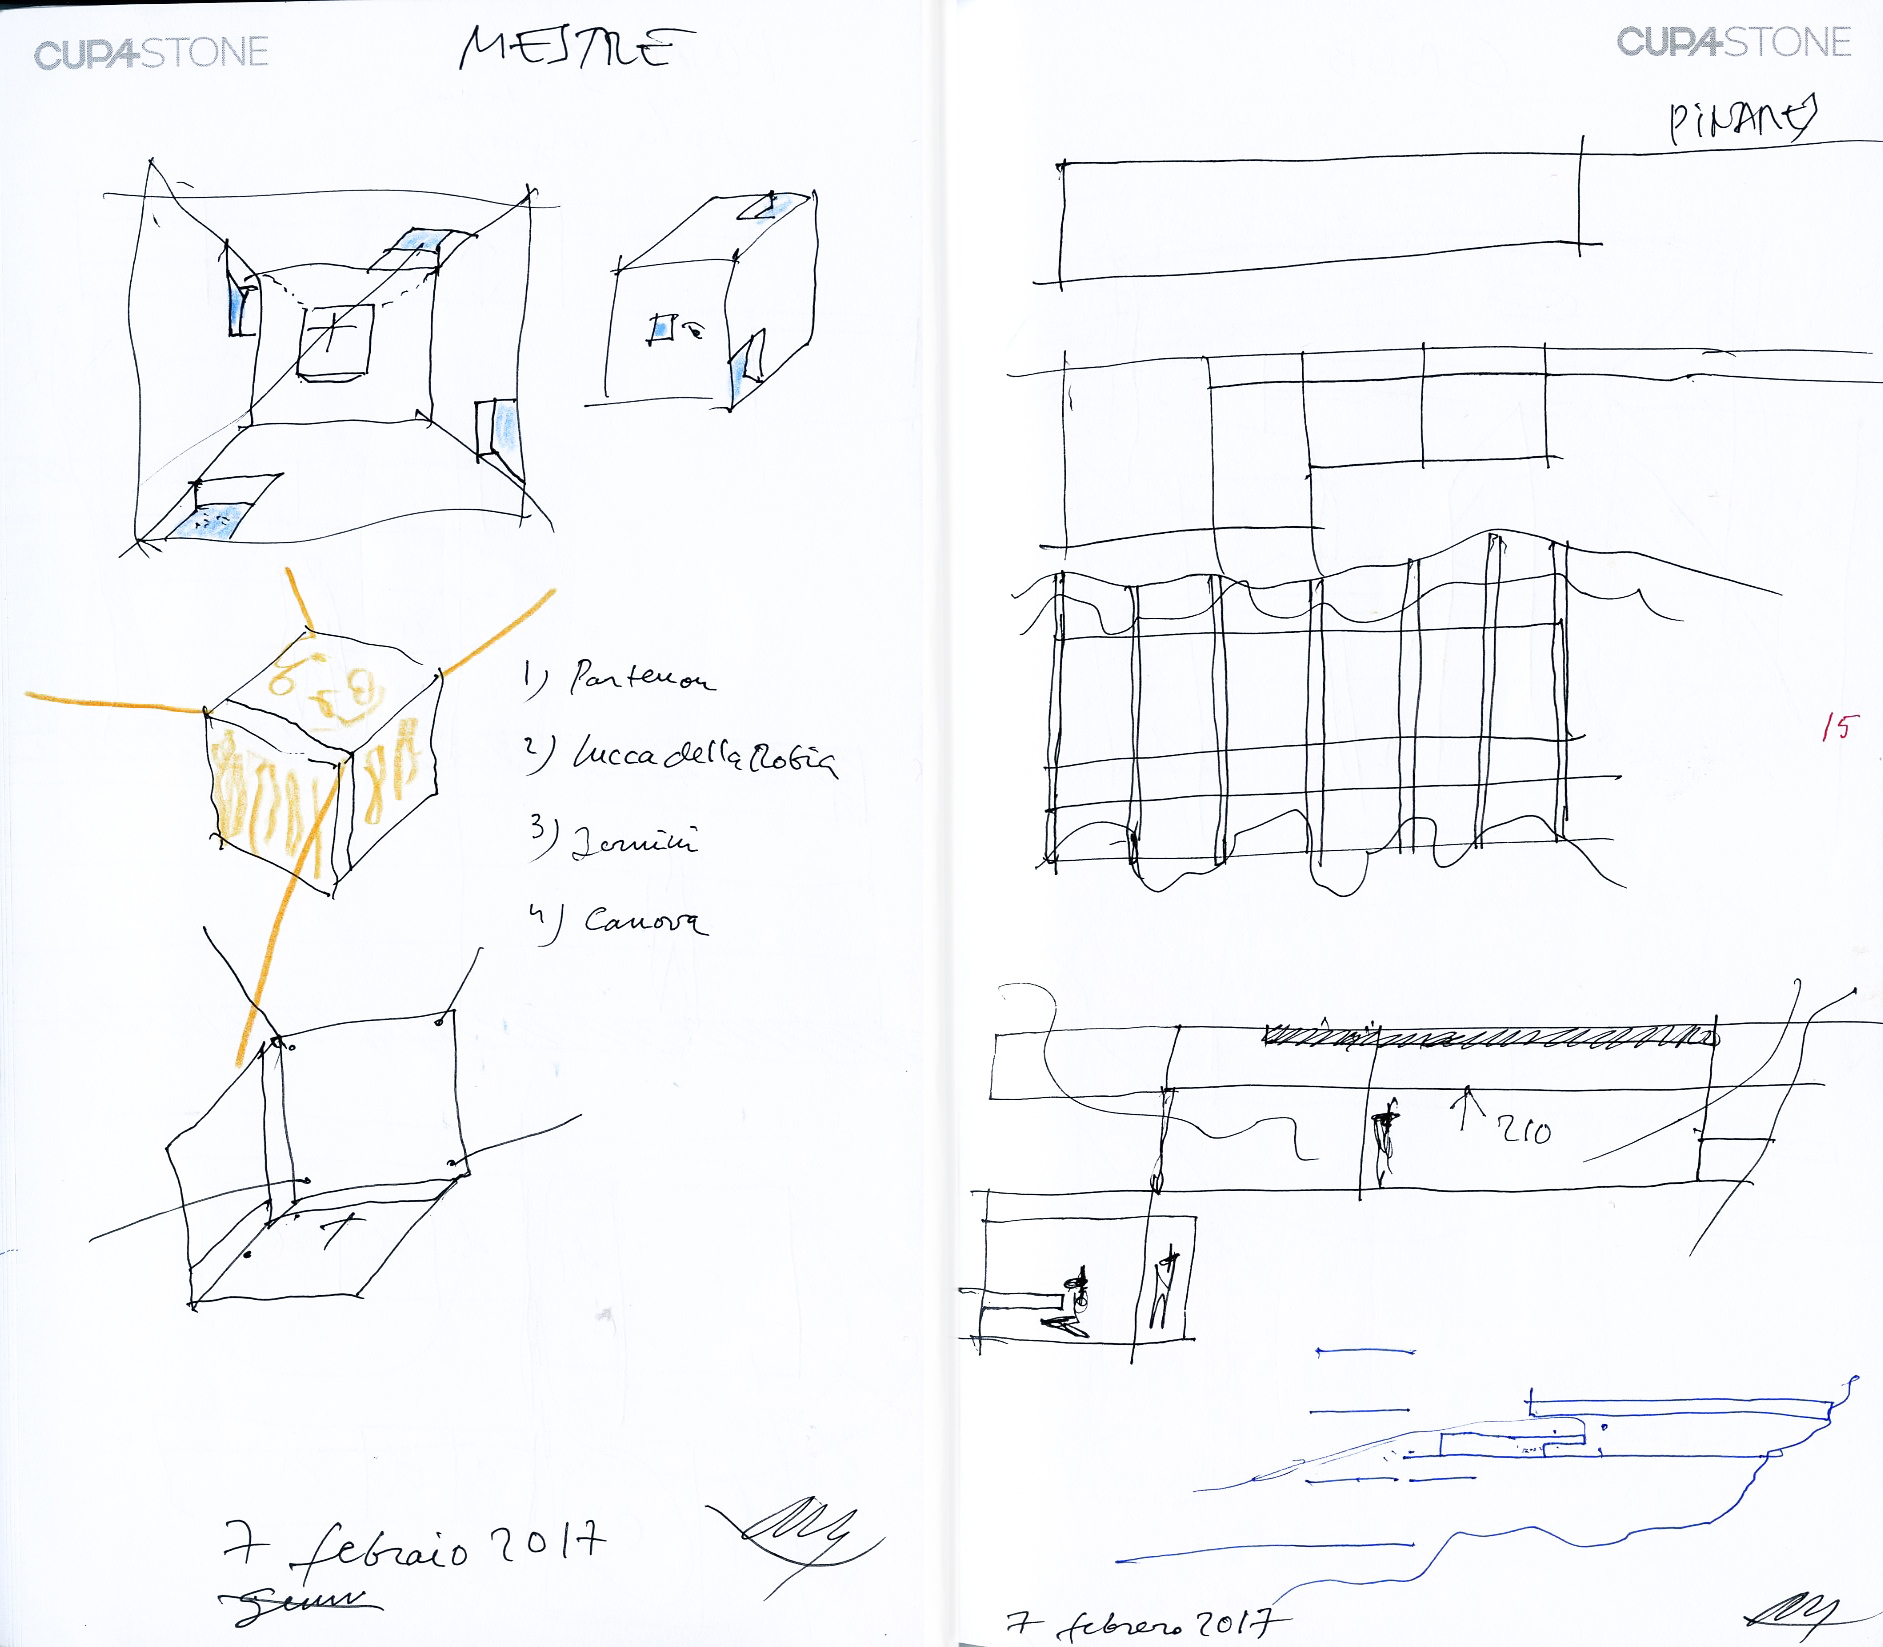 CUPASTONE
MESTRE
1) Partenon
2) Lucca della Robia
3) Bernini
4) Canova
7 febraio 2017
CUPASTONE
PINARES
15
210
7 febrero 2017